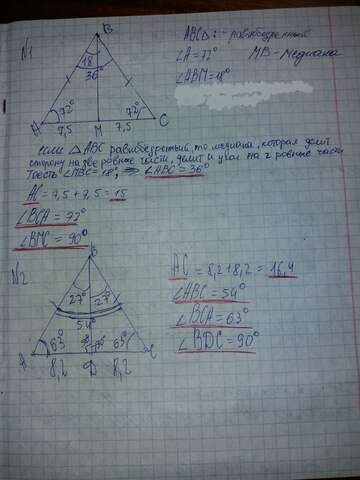 N1
B
18
36°
72°
72°
A
7,5
M
7,5
C
ABC∆: - равнобедренный
∠A = 72°
MB - Медиана
∠ABM = 18°
если △ ABC равнобедренный, то медиана, которая делит
сторону на две ровные части, делит и угол на 2 ровные части
Тоесть ∠MBC = 18°, => ∠ABC = 36°
AC = 7,5 + 7,5 = 15
∠BCA = 72°
∠BMC = 90°
N2
B
27°
27°
54°
63°
63°
A
8,2
D
8,2
C
AC = 8,2 + 8,2 = 16,4
∠ABC = 54°
∠BCA = 63°
∠BDC = 90°